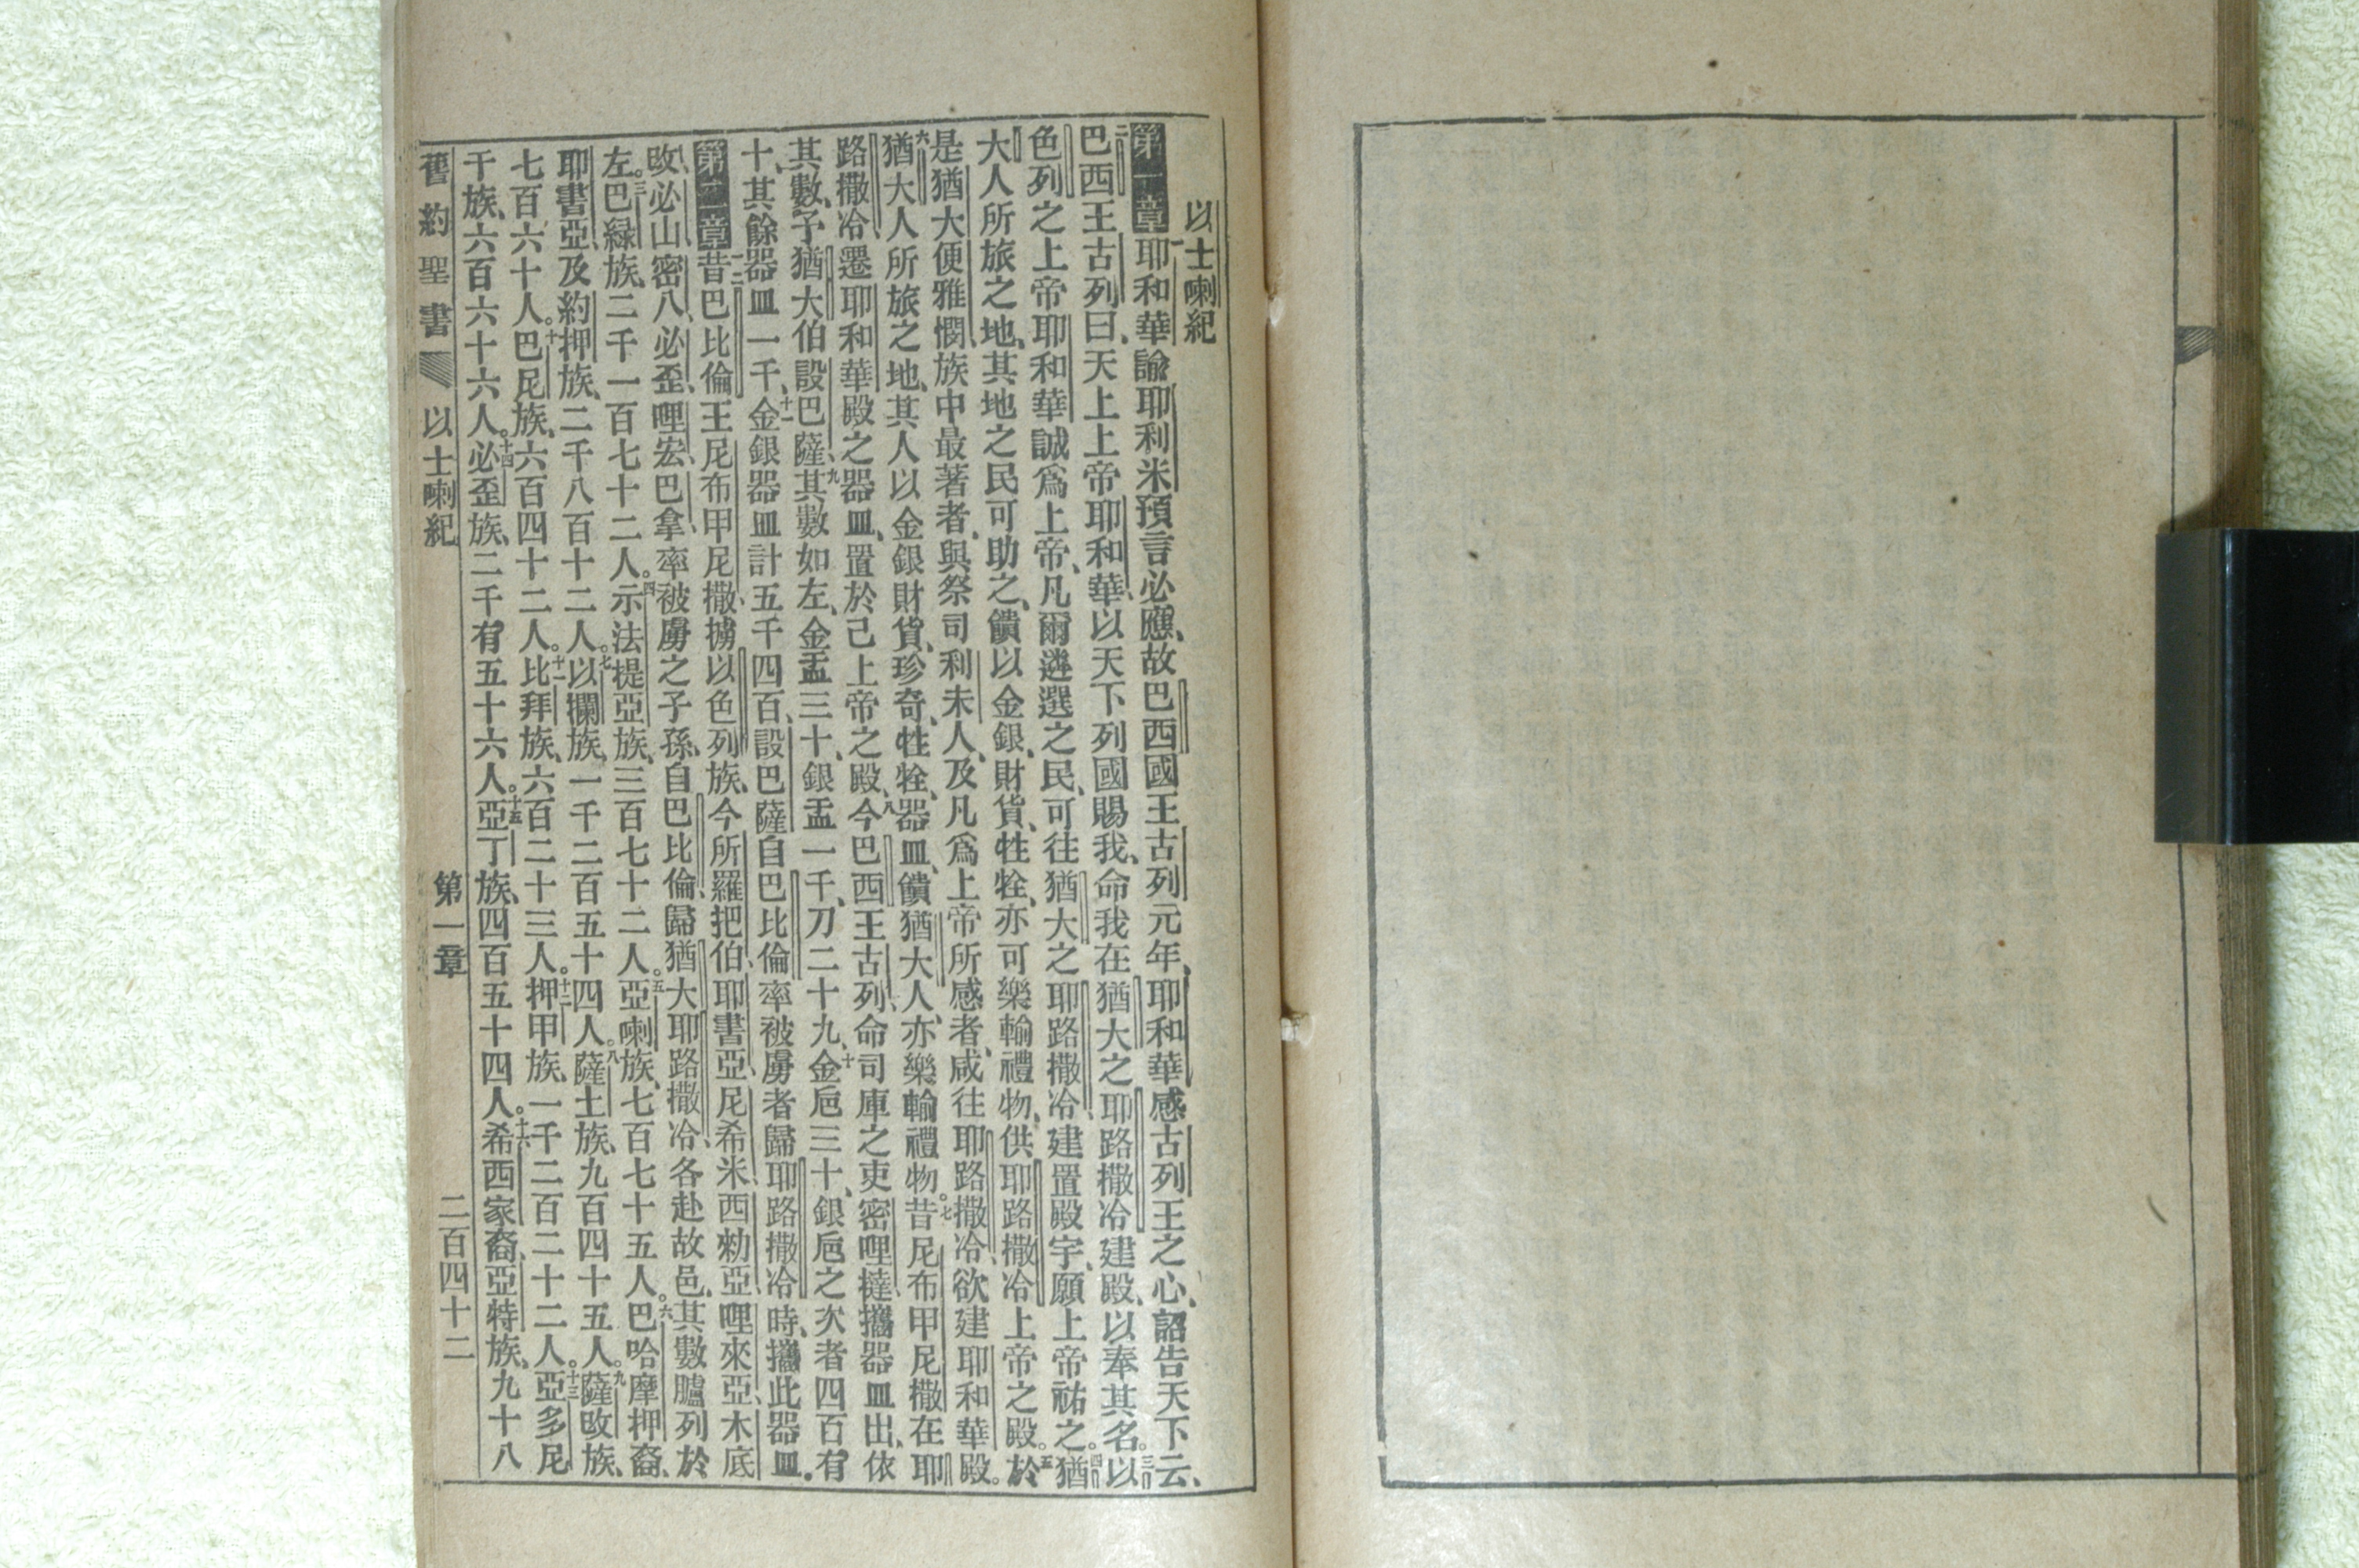 以士喇紀
第一章耶和華諭耶利米預言必應、故巴西國王古列元年、耶和華感古列王之心、詔告天下云、
二巴西王古列曰、天上上帝耶和華、以天下列國賜我、命我在猶大之耶路撒冷建殿、以奉其名。三以
色列之上帝耶和華誠爲上帝、凡爾遴選之民、可往猶大之耶路撒冷、建置殿宇、願上帝祐之。四猶
大人所旅之地、其地之民可助之、饋以金銀、財貨、牲牷、亦可樂輸禮物、供耶路撒冷上帝之殿。五於
是猶大便雅憫族中最著者、與祭司利未人、及凡爲上帝所感者、咸往耶路撒冷、欲建耶和華殿。
六猶大人所旅之地、其人以金銀財貨、珍奇、牲牷、器皿、饋猶大人、亦樂輸禮物。七昔尼布甲尼撒在耶
路撒冷、遷耶和華殿之器皿、置於己上帝之殿、八今巴西王古列、命司庫之吏密哩撻攜器皿出、依
其數、予猶大伯設巴薩、九其數如左、金盂三十、銀盂一千、刀二十九、十金卮三十、銀卮之次者四百有
十、其餘器皿一千、十一金銀器皿計五千四百、設巴薩自巴比倫率被虜者歸耶路撒冷時、攜此器皿。
第二章一二昔巴比倫王尼布甲尼撒、擄以色列族、今所羅把伯、耶書亞、尼希米、西勑亞、哩來亞、木底
改、必山、密八、必歪、哩宏、巴拿、率被虜之子孫、自巴比倫、歸猶大耶路撒冷、各赴故邑、其數臚列於
左。三巴綠族、二千一百七十二人。四示法提亞族、三百七十二人。五亞喇族、七百七十五人。六巴哈摩押裔、
耶書亞、及約押族、二千八百十二人。七以攔族、一千二百五十四人。八薩土族、九百四十五人。九薩改族、
七百六十人。十巴尼族、六百四十二人。十一比拜族、六百二十三人。十二押甲族、一千二百二十二人。十三亞多尼
干族、六百六十六人。十四必歪族、二千有五十六人。十五亞丁族、四百五十四人。十六希西家裔、亞特族、九十八
舊約聖書 以士喇紀 第一章 二百四十二